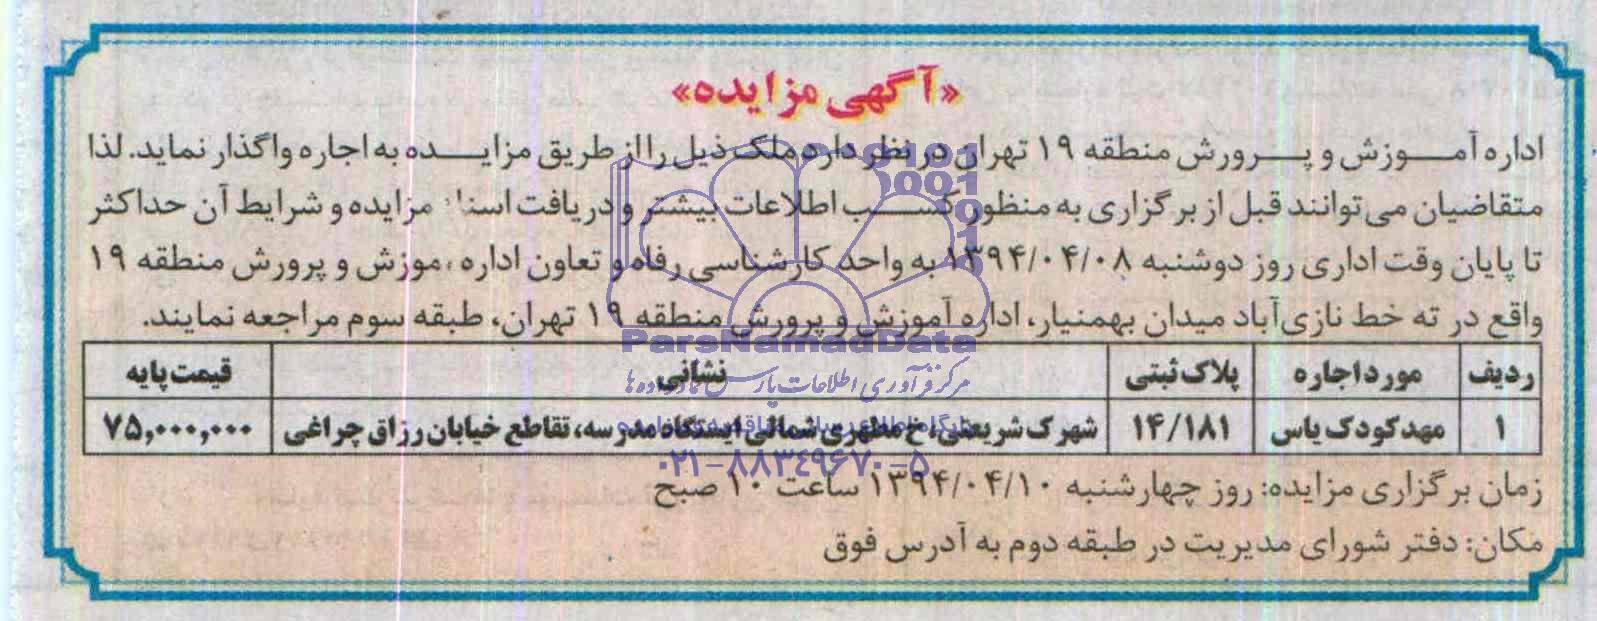 «آگهی مزایده»
اداره آموزش و پرورش منطقه ۱۹ تهران در نظر دارد ملک ذیل را از طریق مزایده به اجاره واگذار نماید. لذا
متقاضیان می‌توانند قبل از برگزاری به منظور کسب اطلاعات بیشتر و دریافت اسناد مزایده و شرایط آن حداکثر
تا پایان وقت اداری روز دوشنبه ۱۳۹۴/۰۴/۰۸ به واحد کارشناسی رفاه و تعاون اداره آموزش و پرورش منطقه ۱۹
واقع در ته خط نازی‌آباد میدان بهمنیار، اداره آموزش و پرورش منطقه ۱۹ تهران، طبقه سوم مراجعه نمایند.
ParsNamadData
مرکز فرآوری اطلاعات پارس نماد داده ها
ردیف مورد اجاره پلاک ثبتی نشانی قیمت پایه
۱ مهد کودک یاس ۱۴/۱۸۱ شهرک شریعتی، خ مطهری شمالی ایستگاه مدرسه، تقاطع خیابان رزاق چراغی ۷۵,۰۰۰,۰۰۰
۰۲۱-۸۸۳۴۹۶۷۰-۵
زمان برگزاری مزایده: روز چهارشنبه ۱۳۹۴/۰۴/۱۰ ساعت ۱۰ صبح
مکان: دفتر شورای مدیریت در طبقه دوم به آدرس فوق